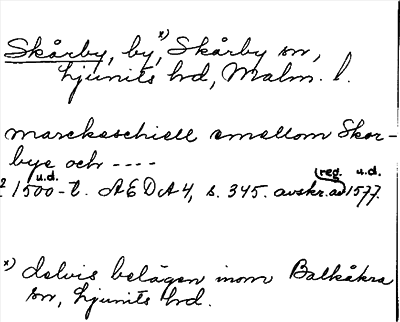 Skårby, by, x) Skårby sn,
Ljunits hd, Malm. l.
marckaschiell emellom Skor-
bye och ----
u.d. reg. u.d.
2 1500-t. AEDA4, s. 345. avskr. av 1577.
x) delvis belägen inom Balkåkra
sn, Ljunits hd.